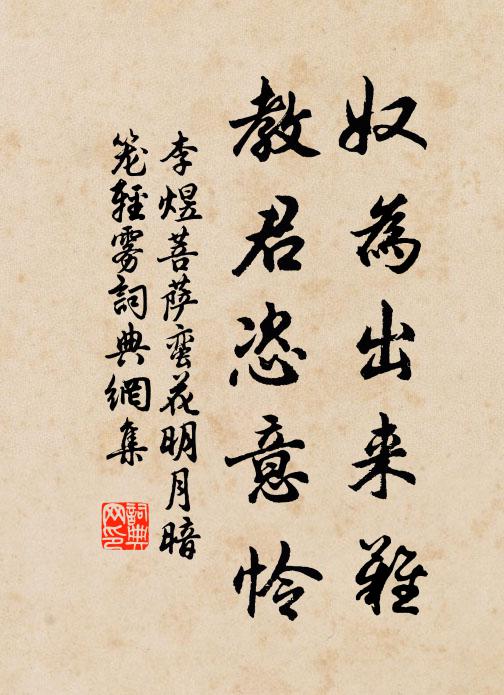 奴為出来難
教君恣意怜
李煜菩萨蛮花明月暗
笼輕雾詞典網集
詞典网印